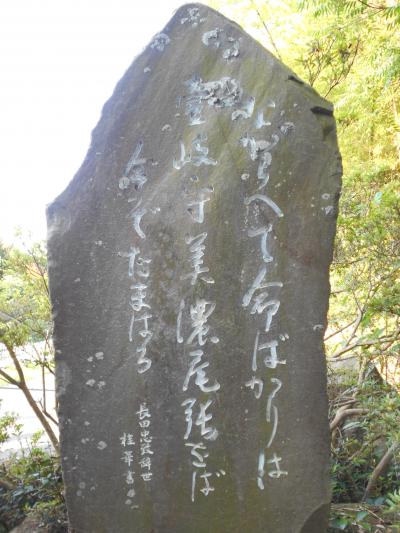 ながらへて命ばかりは
壱岐守美濃尾張をば
今ぞたまはる
長田忠致辞世
桂華書